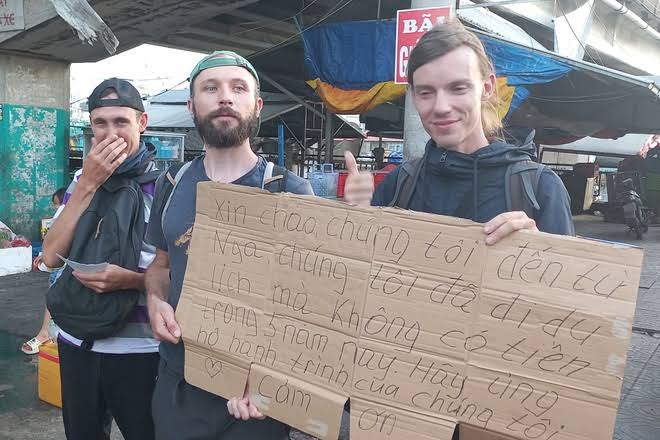 BÃ
Xin chao, chúng tôi đến từ
Nga, chúng tôi đã đi du
lich mà Không có tiền
trong 5 năm nay. Hãy ủng
hộ hành trình của chúng tôi
♡ Cảm ơn